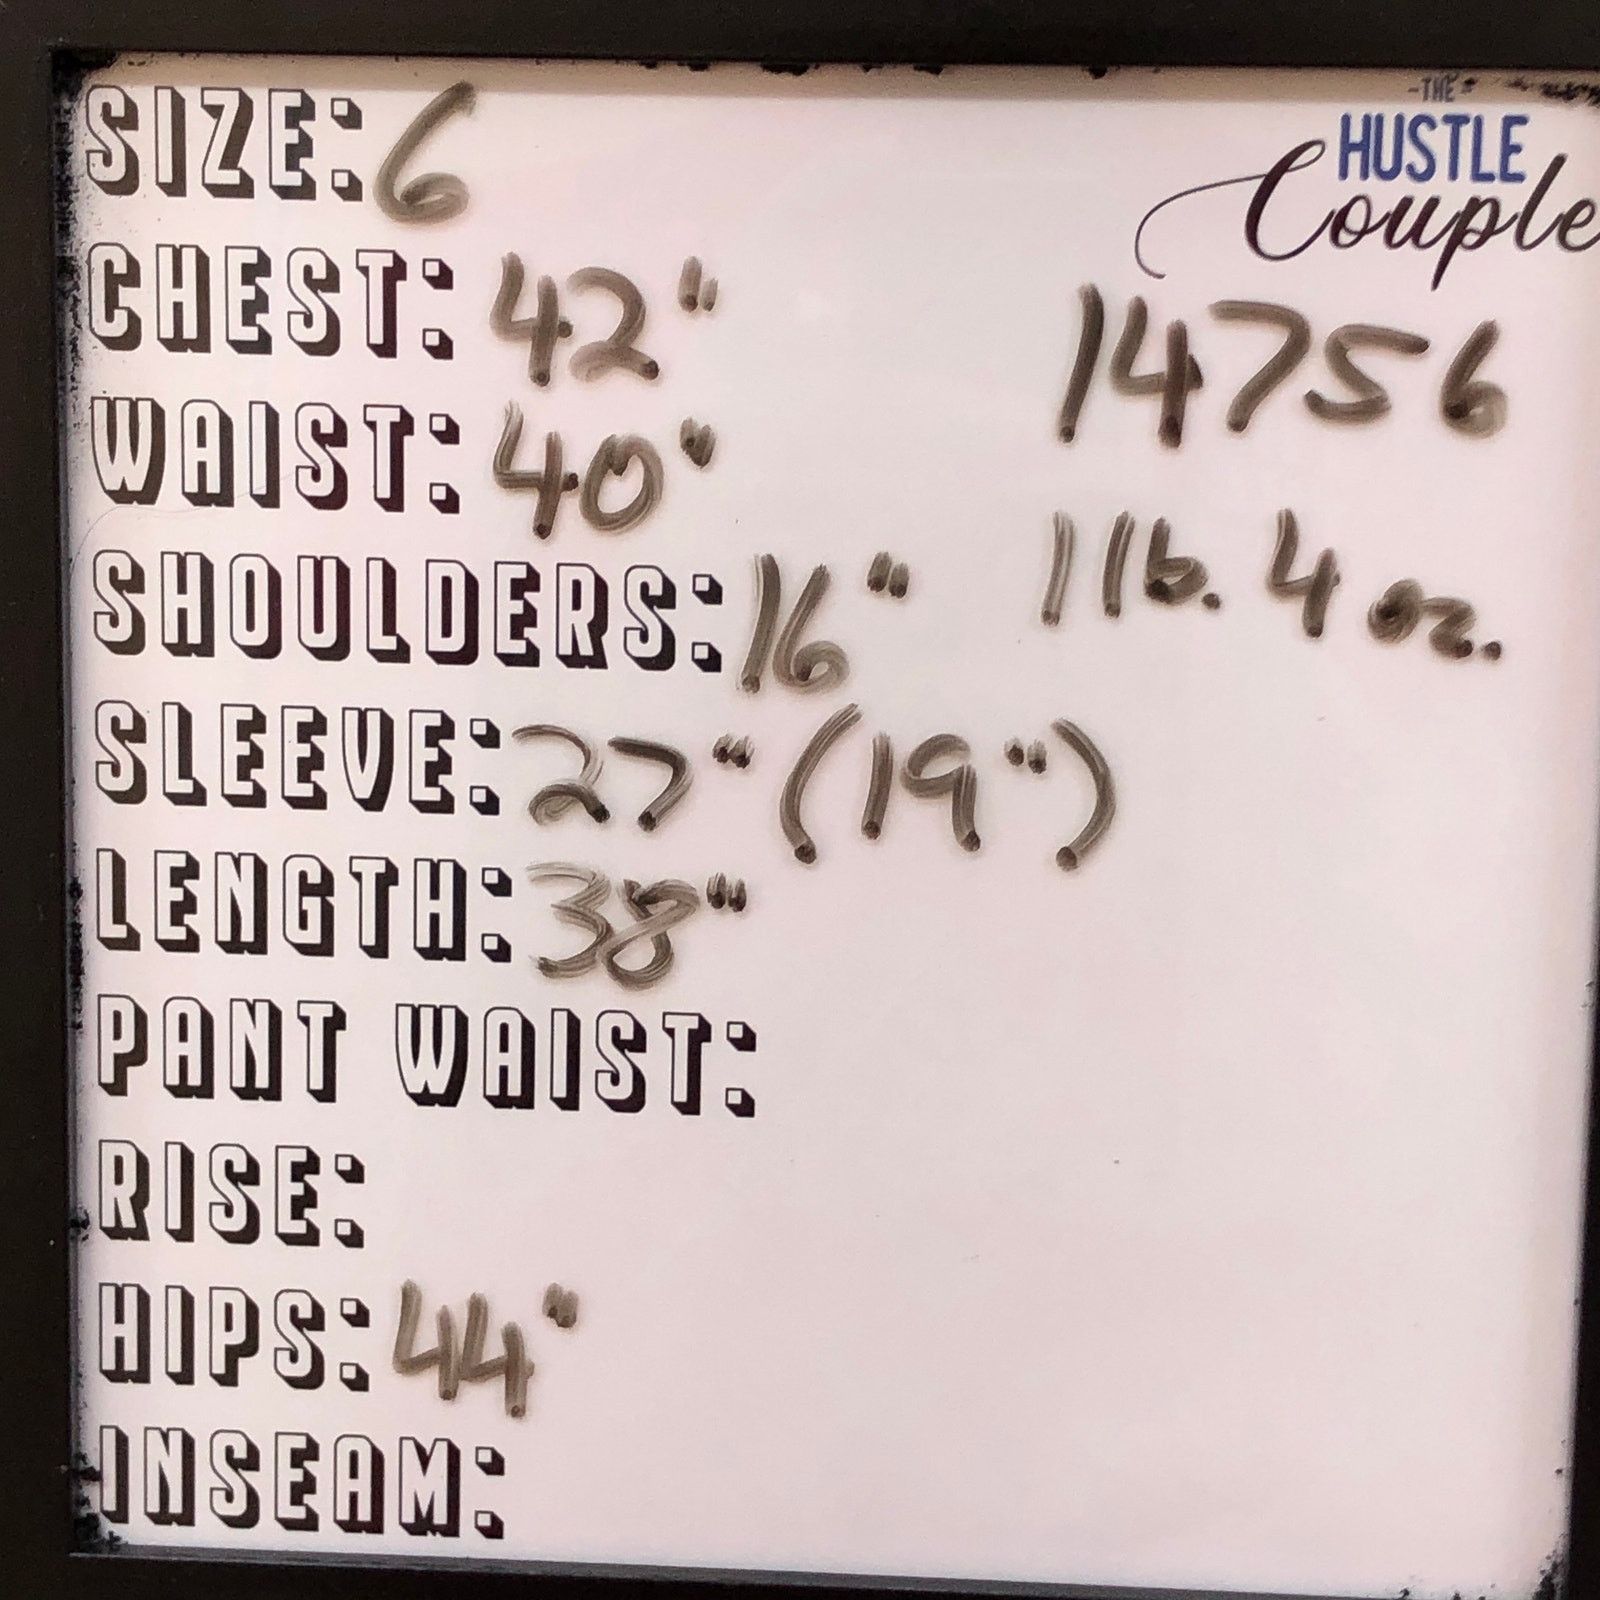 SIZE: 6
-THE-
HUSTLE
Couple
CHEST: 42"
14756
WAIST: 40"
SHOULDERS: 16"
1 lb. 4 oz.
SLEEVE: 27" (19")
LENGTH: 38"
PANT WAIST:
RISE:
HIPS: 44"
INSEAM: